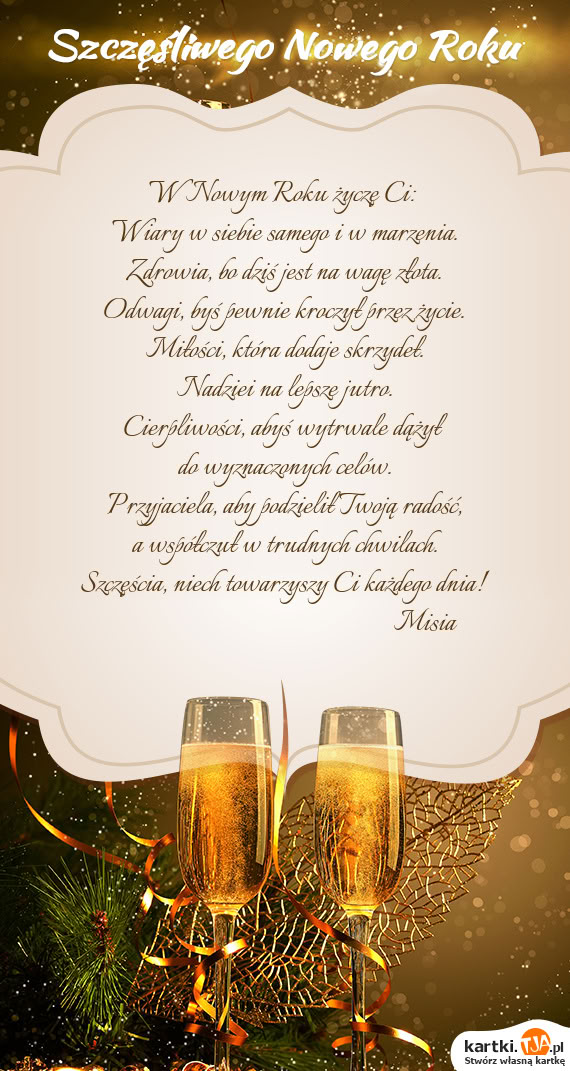 Szczęśliwego Nowego Roku
W Nowym Roku życzę Ci:
Wiary w siebie samego i w marzenia.
Zdrowia, bo dziś jest na wagę złota.
Odwagi, byś pewnie kroczył przez życie.
Miłości, która dodaje skrzydeł.
Nadziei na lepsze jutro.
Cierpliwości, abyś wytrwale dążył
do wyznaczonych celów.
Przyjaciela, aby podzielił Twoją radość,
a współczuł w trudnych chwilach.
Szczęścia, niech towarzyszy Ci każdego dnia!
Misia
kartki.TJA.pl
Stwórz własną kartkę